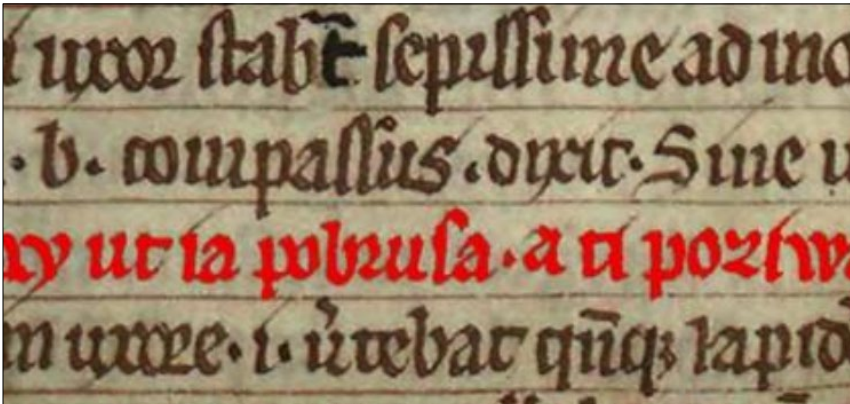 i uxoꝛ ſtabt̄ ſepiſſime ad mo
. b. compaſſus . dixit . Sine u
ay ut ia pobruſa . a ti poziwa
m uxoꝛe . i . ůtebat qn̄qꝫ lapid